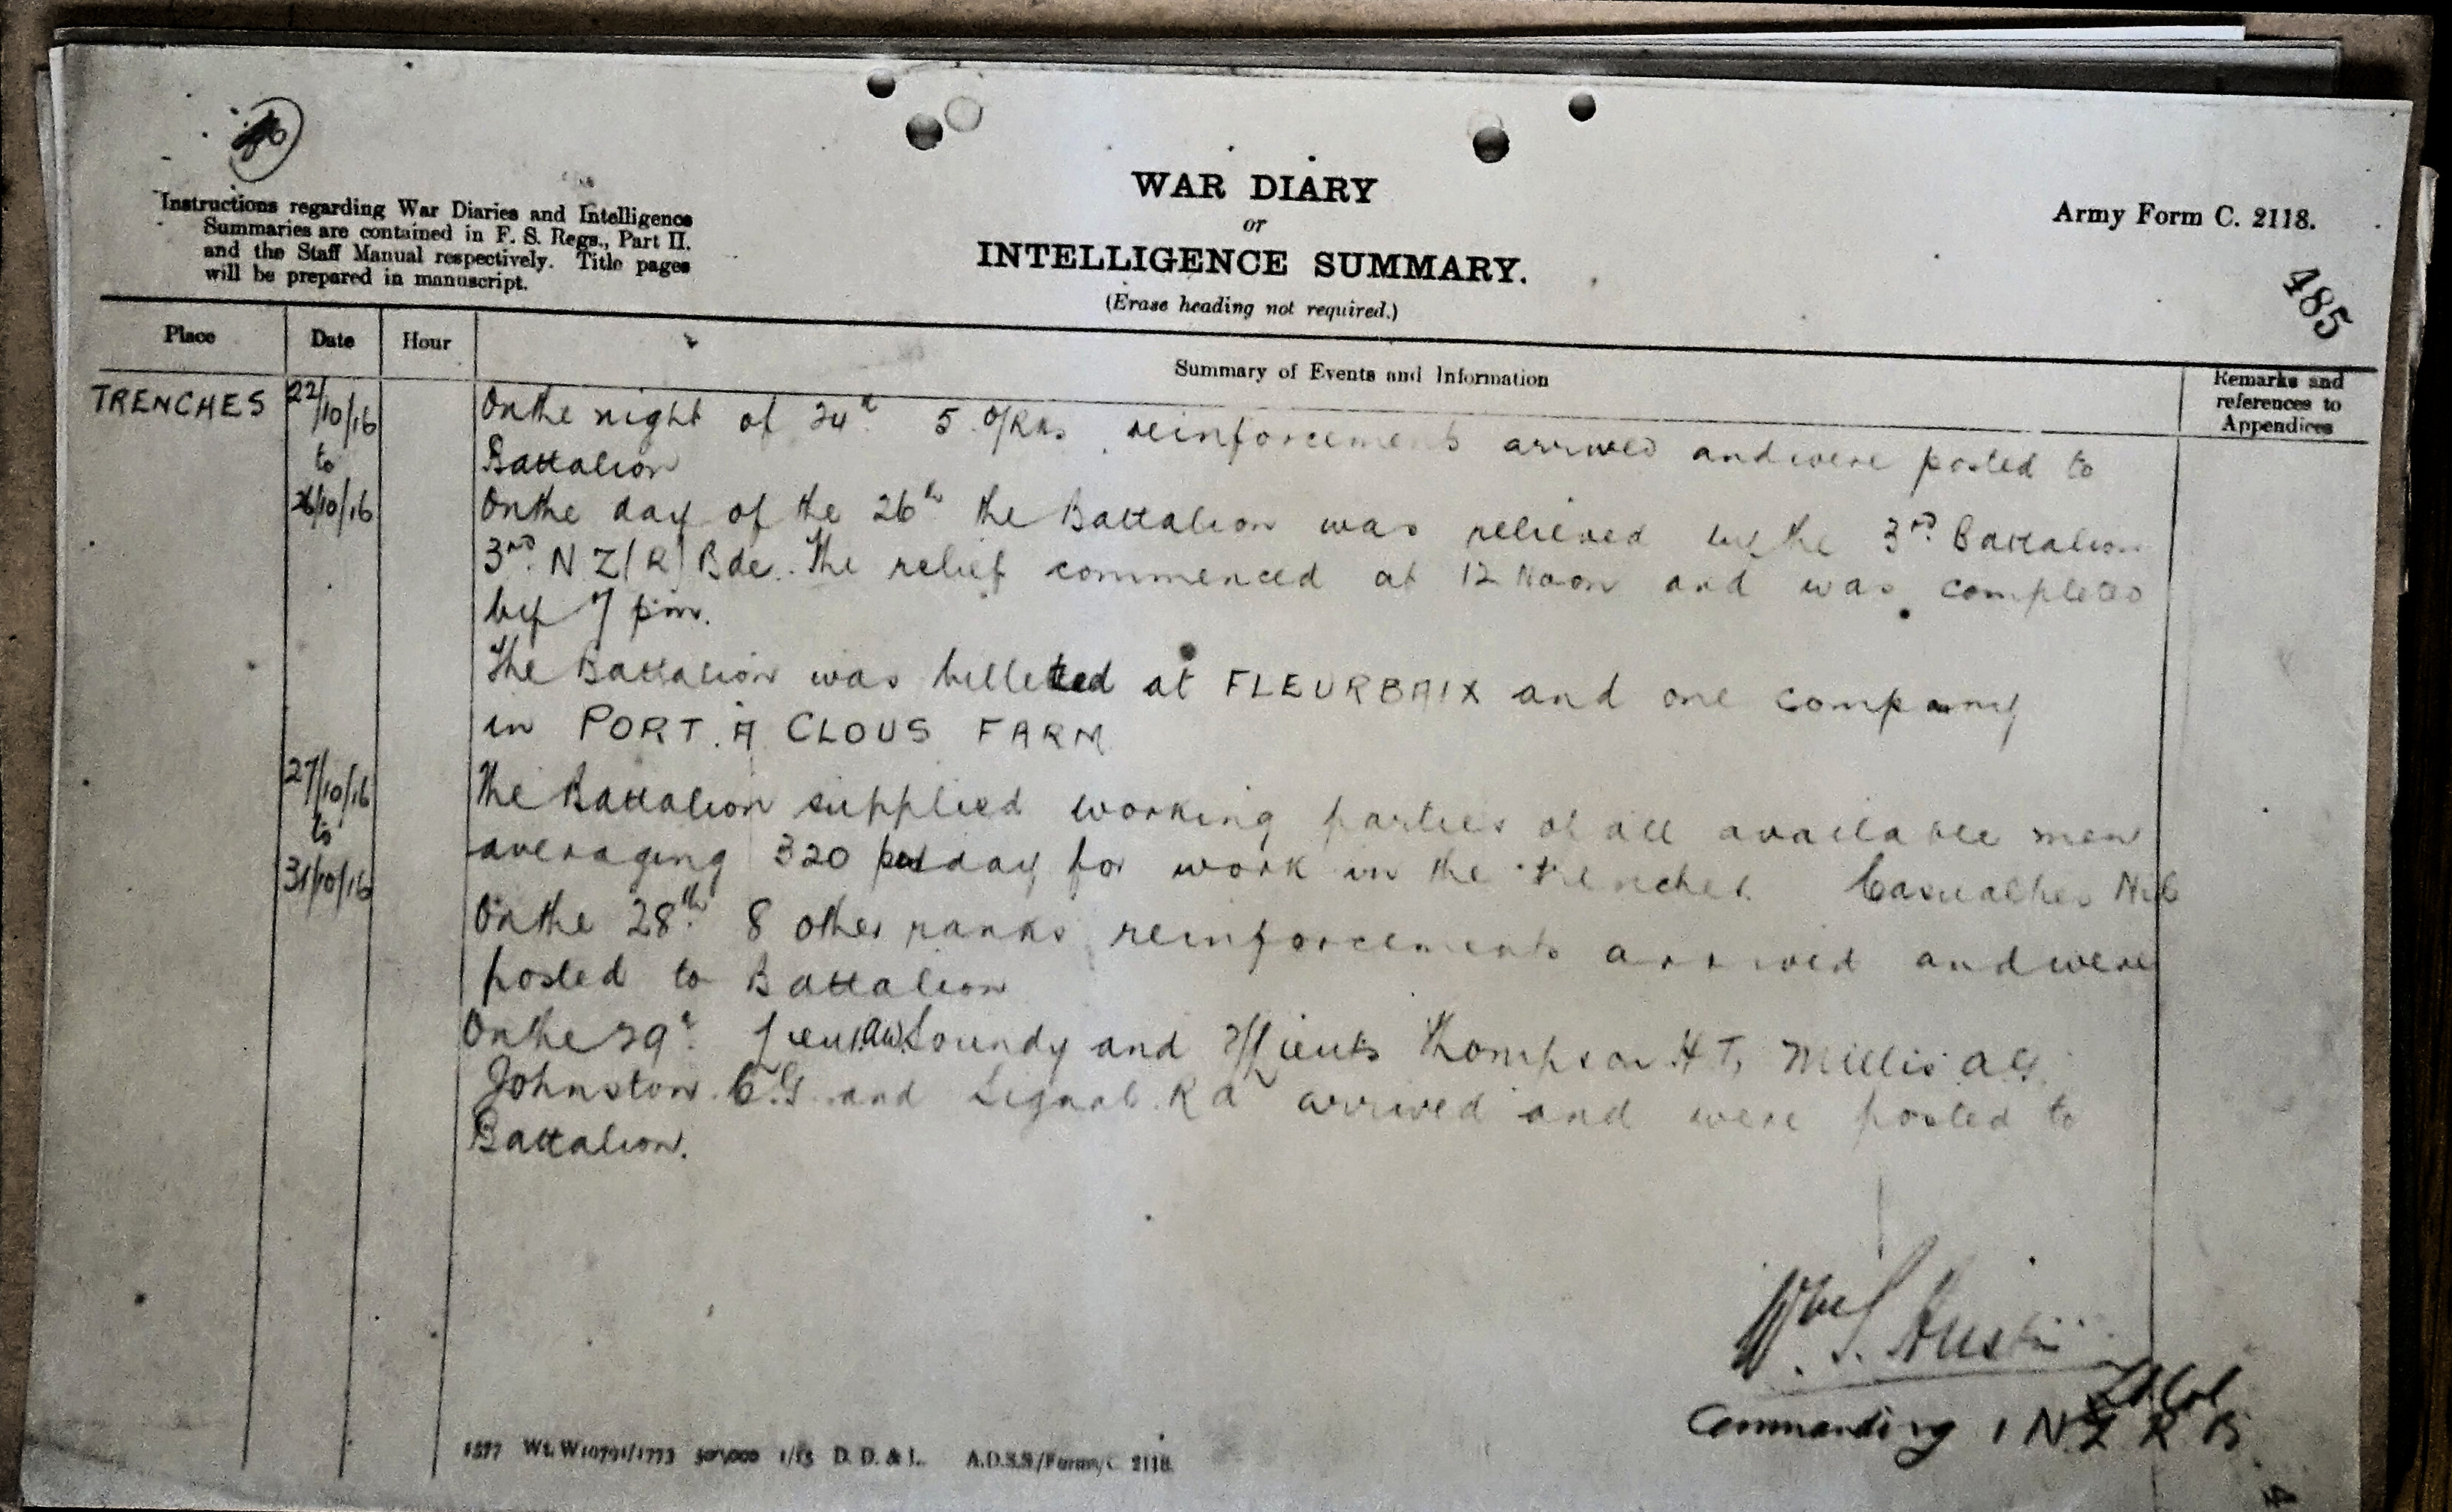 Instructions regarding War Diaries and Intelligence
Summaries are contained in F. S. Regs., Part II.
and the Staff Manual respectively. Title pages
will be prepared in manuscript.
WAR DIARY
or
INTELLIGENCE SUMMARY.
(Erase heading not required.)
Army Form C. 2118.
485
Place Date Hour Summary of Events and Information Remarks and
references to
Appendices
TRENCHES 22/10/16 On the night of 24th 5 O/Rks reinforcements arrived and were posted to
to Battalion
26/10/16 On the day of the 26th the Battalion was relieved by the 3rd Battalion
3rd N Z (R) Bde. The relief commenced at 12 Noon and was completed
by 7 pm.
The Battalion was billeted at FLEURBAIX and one company
in PORT. A CLOUS FARM
27/10/16 The Battalion supplied working parties of all available men
to averaging 320 per day for work in the trenches. Casualties Nil
31/10/16 On the 28th 8 other ranks reinforcements arrived and were
posted to Battalion
On the 29th Lieut. A.W. Loundy and 2/Lieuts Thompson H.T, Millis A G
Johnston C.G and Signal R A arrived and were posted to
Battalion.
W. S. Austin
Lt Col
Commanding 1 N Z R B
1577 Wt. W10791/1773 500,000 1/15 D. D. & L. A.D.S.S/Forms/C. 2118.